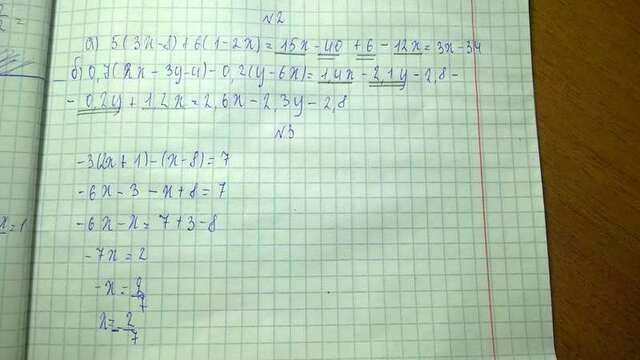 N2
а) 5(3x-8)+6(1-2x)=15x-40+6-12x=3x-34
б) 0,7(2x-3y-4)-0,2(y-6x)=1,4x-2,1y-2,8-
-0,2y+1,2x=2,6x-2,3y-2,8
N3
-3(2x+1)-(x-8)=7
-6x-3-x+8=7
-6x-x=7+3-8
-7x=2
-x=2/7
x=-2/7